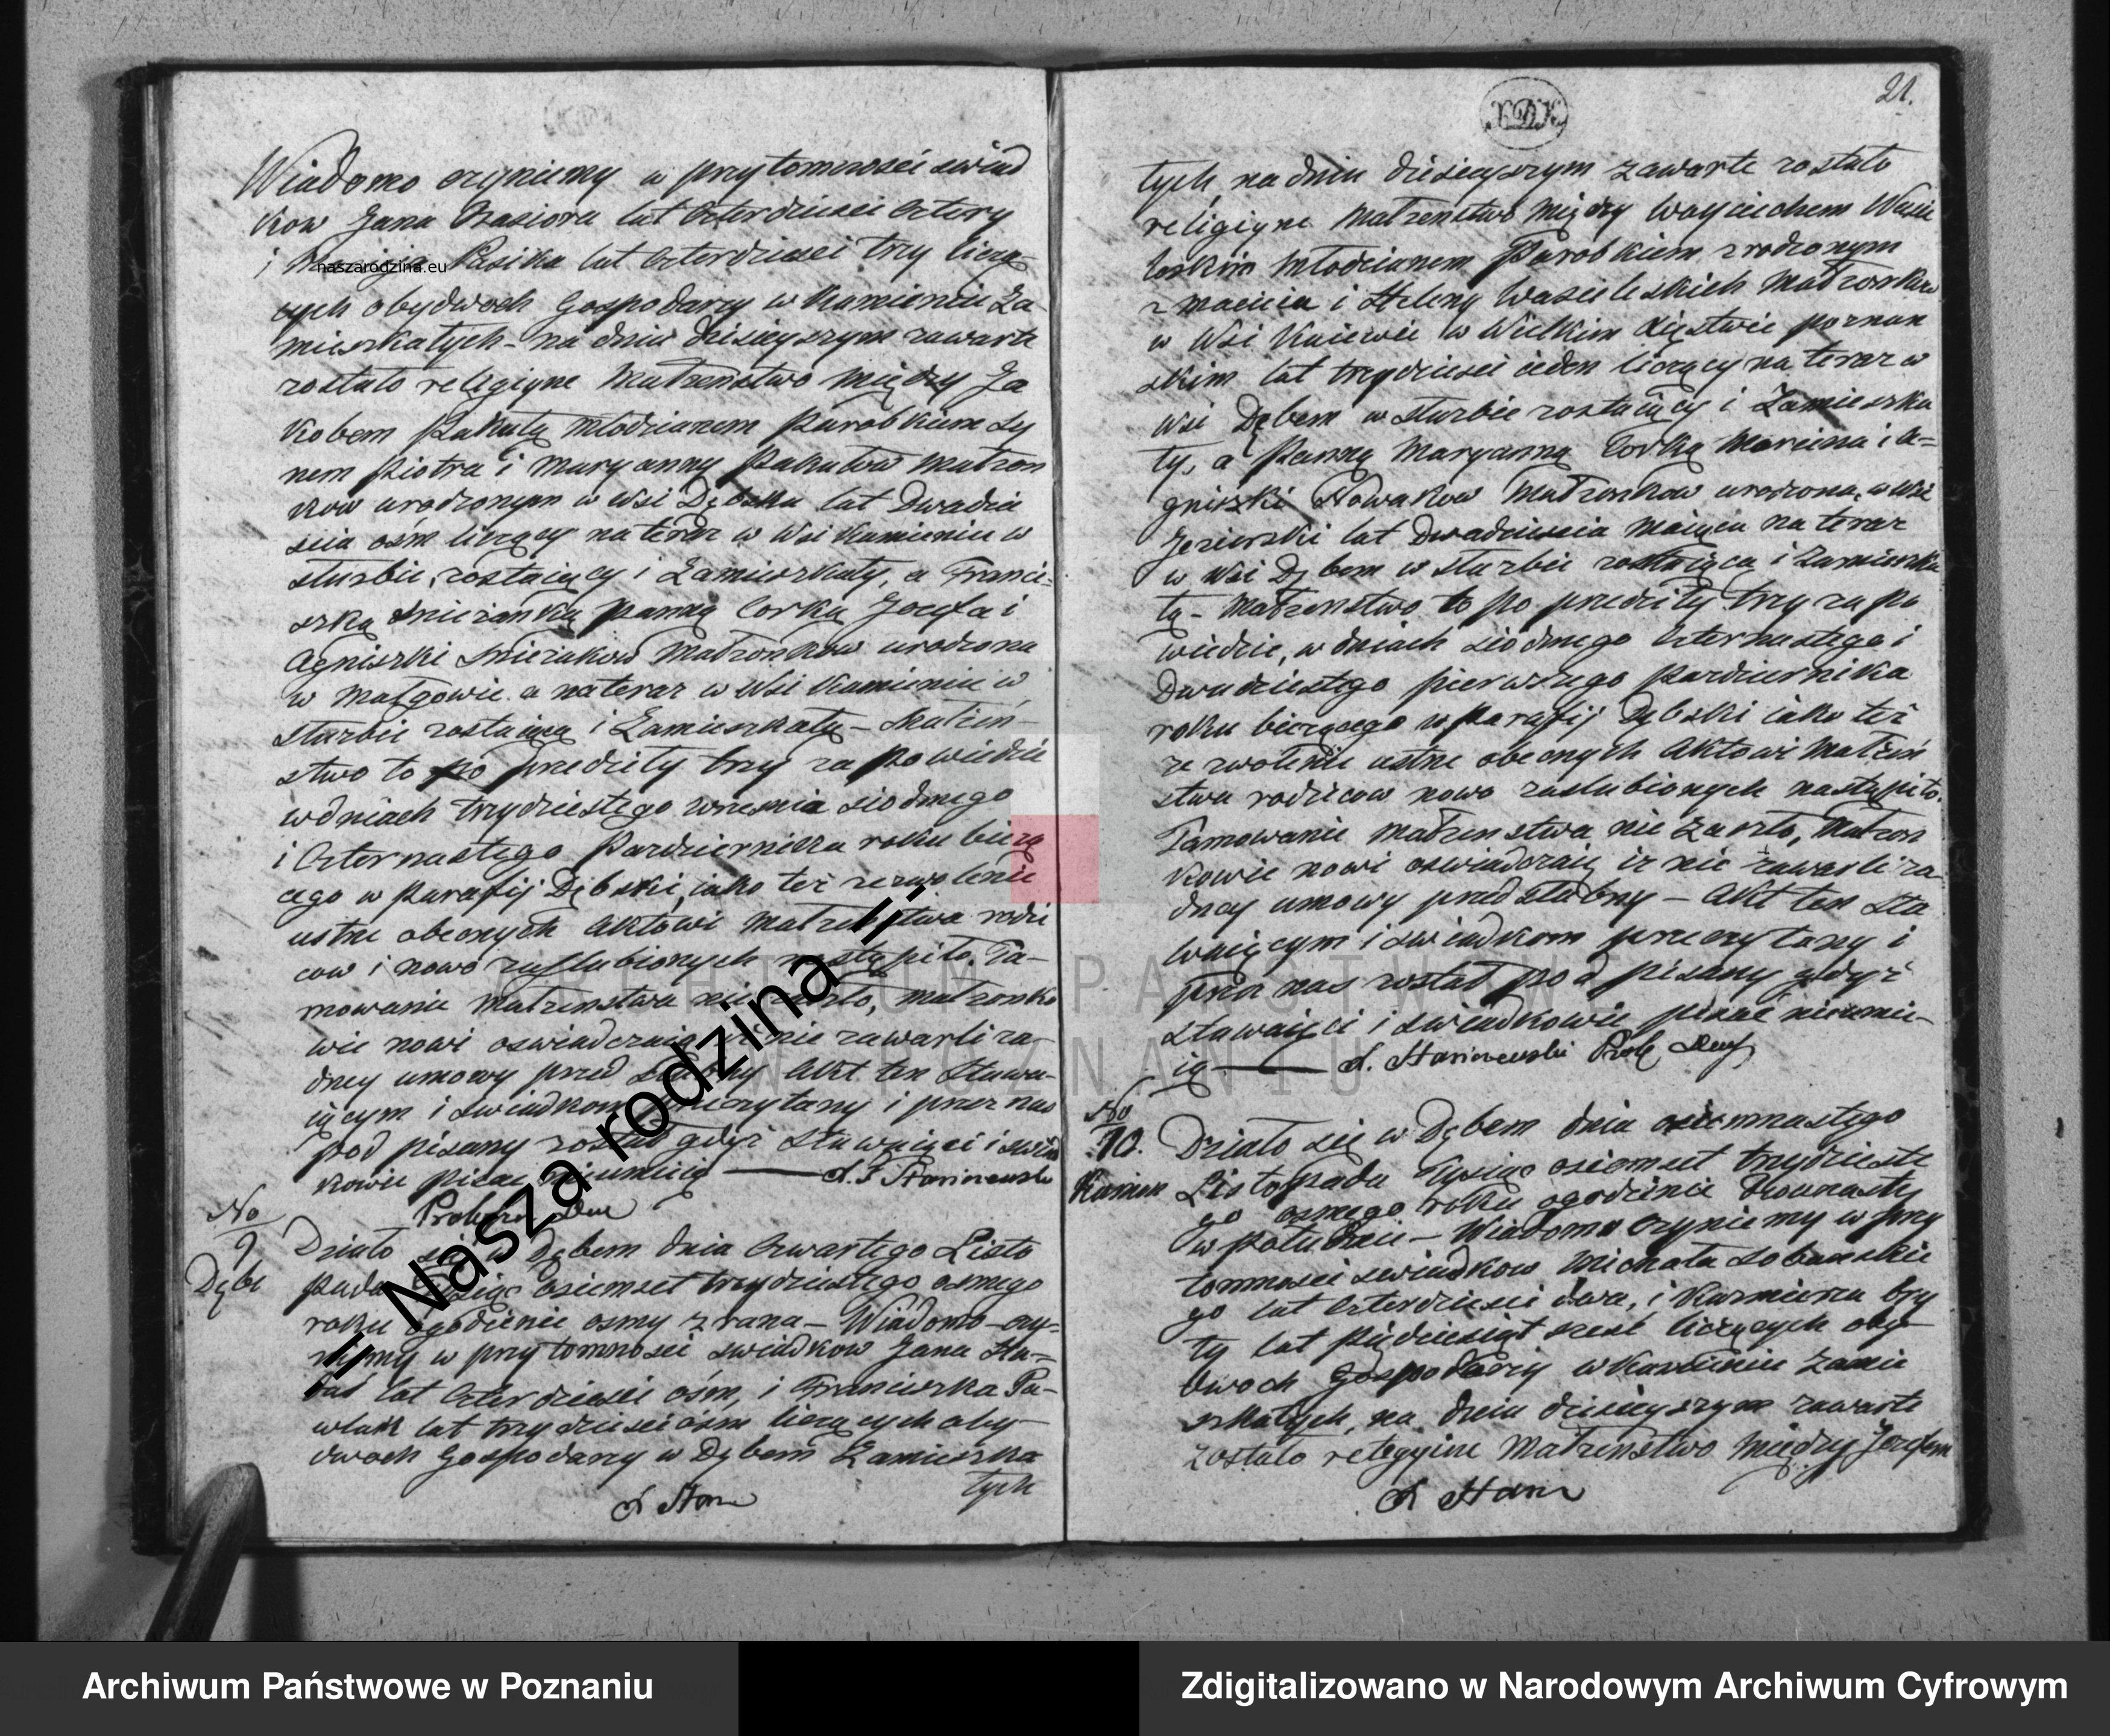 Wiadomo czyniemy w przytomności swiad
kow Jana Gasiora lat Czterdzieści Cztery
i Pasika lat Czterdzieści trzy liczą-
cych obydwoch Gospodarzy w Kamieniu Za-
mieszkałych - na dniu dzisieyszym zawarte
zostało religiyne Małżenstwo między Ja
kobem Pakułą Młodzianem Parobkiem Sy
nem Piotra i Maryanny Pakułów Małżon
kow urodzonym w Wsi Dębsku lat Dwadzie
ścia ośm liczący na teraz w Wsi Kamieniu w
służbie zostaiący i Zamieszkały, a Franci-
szką Snieżanką Panną Corką Jozefa i
Agnieszki Snieżakow Małżonkow urodzona
w Małgowie a na teraz w Wsi Kamieniu w
służbie zostaiącą i Zamieszkałą - Małżeń-
stwo to po przedziły trzy zapowiedzie
w dniach trzydziestego wrzesnia siodmego
i Czternastego Pazdziernika roku bieżą
cego w Parafij Dębski, iako też zezwolenie
ustne obecnych Aktowi Małżeństwa rodzi
cow i nowo zaslubionych nastąpiło. Ta-
mowanie Małżenstwa nie zaszło, Małżonko
wie nowi oswiadczaią iż nie zawarli ża-
dney umowy przed slubny Akt ten Stawa-
iącym i swiadkom przeczytany i przez nas
pod pisany został gdyż Stawaiący i swiad
kowie pisac nieumieią — S. F Starczewski
Proboszcz
No
9
Dębe
Działo się w Dębem dnia Czwartego Listo
pada Tysiąc osiemset trzydziestego osmego
roku ogodzinie osmy z rana - Wiadomo czy-
niemy w przytomności swiadkow Jana
lat Czterdzieści ośm, i Franciszka Pa-
wlak lat trzydzieści ośm liczących oby-
dwoch Gospodarzy w Dębem Zamieszka
tych
21.
tych, na dniu dzisieyszym zawarte zostało
religiyne Małżenstwo między Woyciechem Wasie
leskim Młodzianem Parobkiem zrodzonym
z Macieia i Heleny Wasieleskich Małżonkow
w Wsi Kuiewie w Wielkim Xięstwie poznan
skim lat trzydzieści ieden liczący na teraz w
Wsi Dębem w służbie zostaiący i Zamieszka
ły, a Panną Maryanną Corką Marcina i A-
gnieszki Nowakow Małżonkow urodzoną w Wsi
Jeziorski lat Dwadzieścia maiąca na teraz
w Wsi Dębem w służbie zostaiącą i Zamieszka
łą - Małżenstwo to po przedziły trzy zapo
wiedzie, w dniach siodmego Czternastego i
Dwudziestego pierwszego Pazdziernika
roku bieżącego w Parafij Dębski iako też
ze zwolenie ustne obecnych Aktowi Małżeń
stwa rodzicow nowo zaslubionych nastąpiło.
Tamowanie Małżenstwa nie zaszło, Małżon
kowie nowi oswiadczaią iz nie zawarli ża-
dney umowy przed slubny - Akt ten Sta
waiącym i swiadkom przeczytany i
przez nas został pod pisany gdyż
stawaiący i swiadkowie pisać nieumie-
ią — S. Starczewski Prob.
No
10.
Kamien
Działo się w Dębem dnia osiemnastego
Listopada Tysiąc osiemset trzydzieste
go osmego roku ogodzinie Dwunasty
w południe - Wiadomo Czyniemy w przy
tomności swiadkow Michała Sobanskie
go lat Czterdzieści dwa, i Kazmierza Bry
ły lat Pięćdziesiąt sześć liczących oby-
dwoch Gospodarzy w Kamieniu zamie
szkałych, na dniu dzisieyszym zawarte
zostało religiyne Małżenstwo między Jozefem
naszarodzina.eu
:: Nasza rodzina ::
ARCHIWUM PAŃSTWOWE
W POZNANIU
Archiwum Państwowe w Poznaniu
Zdigitalizowano w Narodowym Archiwum Cyfrowym